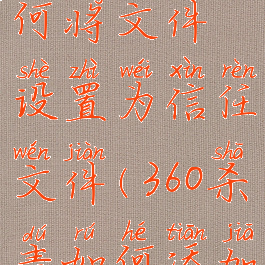 何将文件
shè zhì wéi xìn rèn
设置为信任
wén jiàn shā
文件(360杀
dú rú hé tiān jiā
毒如何添加